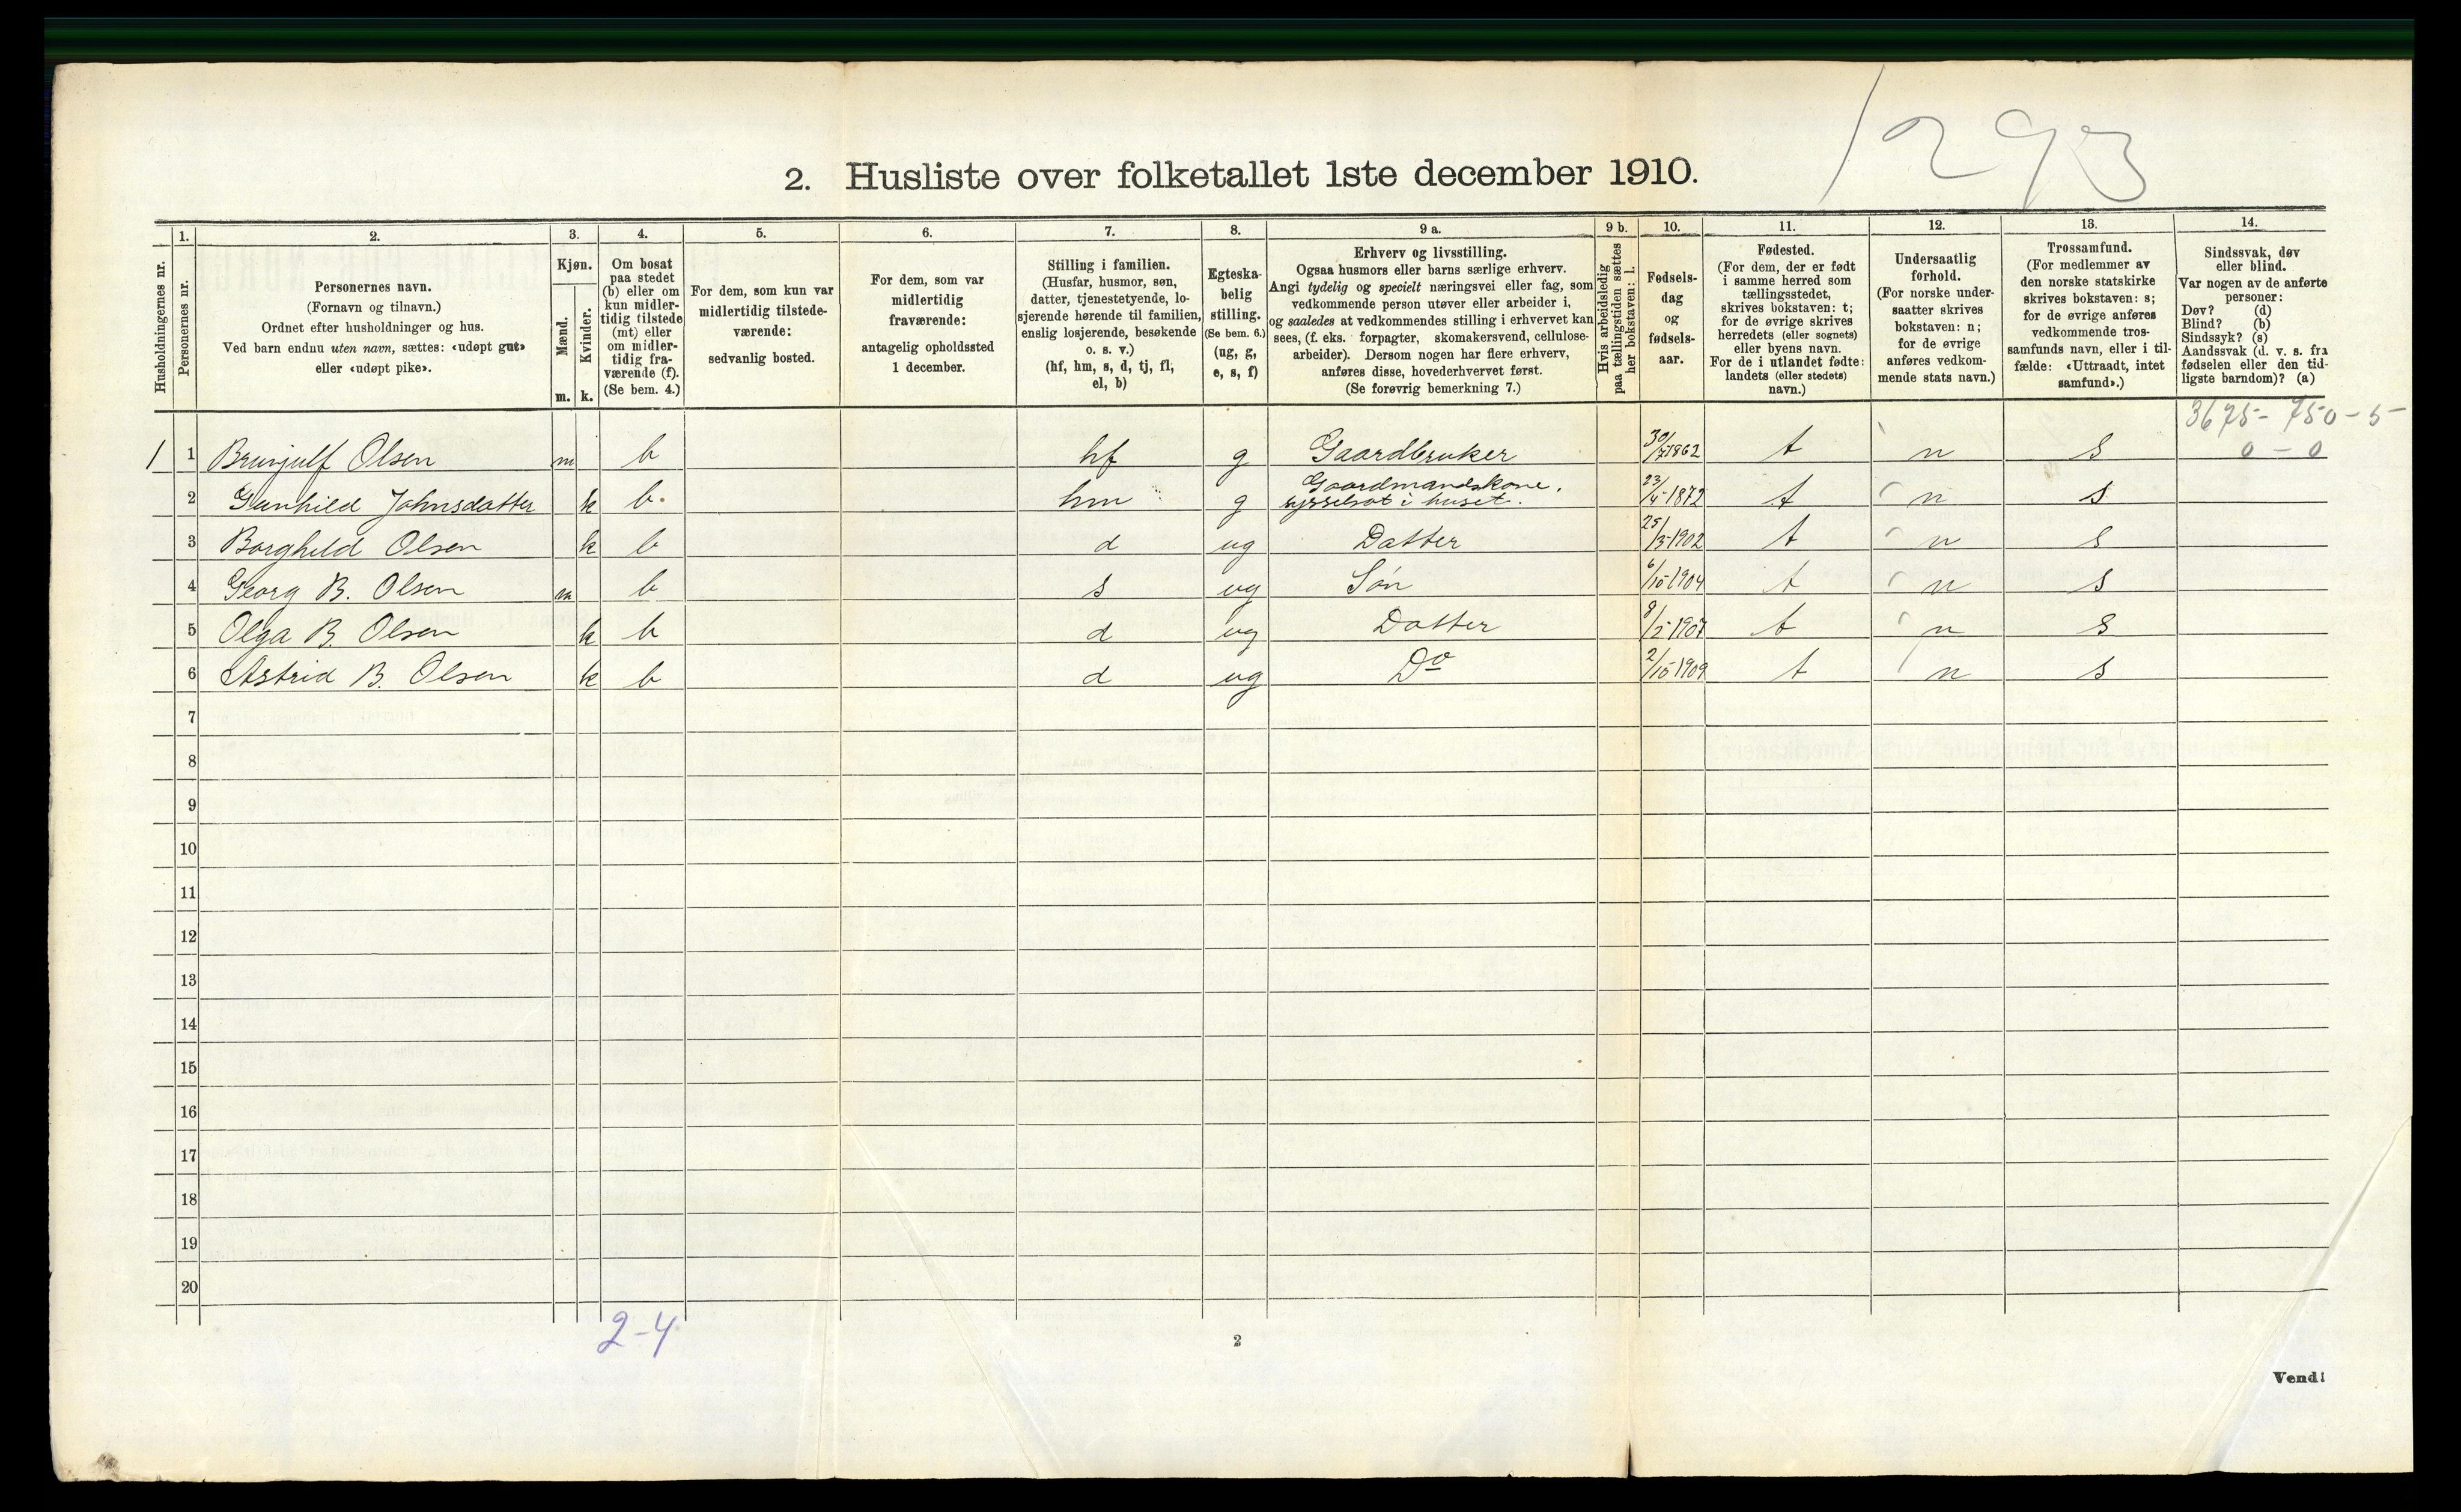 1293
2. Husliste over folketallet 1ste december 1910.
Husholdningernes nr.
1.
Personernes nr.
2.
Personernes navn.
(Fornavn og tilnavn.)
Ordnet efter husholdninger og hus.
Ved barn endnu uten navn, sættes: «udøpt gut»
eller «udøpt pike».
3.
Kjøn.
Mænd.
Kvinder.
m. k.
4.
Om bosat
paa stedet
(b) eller om
kun midler-
tidig tilstede
(mt) eller
om midler-
tidig fra-
værende (f).
(Se bem. 4.)
5.
For dem, som kun var
midlertidig tilstede-
værende:
sedvanlig bosted.
6.
For dem, som var
midlertidig
fraværende:
antagelig opholdssted
1 december.
7.
Stilling i familien.
(Husfar, husmor, søn,
datter, tjenestetyende, lo-
sjerende hørende til familien,
enslig losjerende, besøkende
o. s. v.)
(hf, hm, s, d, tj, fl,
el, b)
8.
Egteska-
belig
stilling.
(Se bem. 6.)
(ug, g,
e, s, f)
9 a.
Erhverv og livsstilling.
Ogsaa husmors eller barns særlige erhverv.
Angi tydelig og specielt næringsvei eller fag, som
vedkommende person utøver eller arbeider i,
og saaledes at vedkommendes stilling i erhvervet kan
sees, (f. eks. forpagter, skomakersvend, cellulose-
arbeider). Dersom nogen har flere erhverv,
anføres disse, hovederhvervet først.
(Se forøvrig bemerkning 7.)
9 b.
Hvis arbeidsledig
paa tællingstiden sættes
her bokstaven: l.
10.
Fødsels-
dag
og
fødsels-
aar.
11.
Fødested.
(For dem, der er født
i samme herred som
tællingsstedet,
skrives bokstaven: t;
for de øvrige skrives
herredets (eller sognets)
eller byens navn.
For de i utlandet fødte:
landets (eller stedets)
navn.)
12.
Undersaatlig
forhold.
(For norske under-
saatter skrives
bokstaven: n;
for de øvrige
anføres vedkom-
mende stats navn.)
13.
Trossamfund.
(For medlemmer av
den norske statskirke
skrives bokstaven: s;
for de øvrige anføres
vedkommende tros-
samfunds navn, eller i til-
fælde: «Uttraadt, intet
samfund».)
14.
Sindssvak, døv
eller blind.
Var nogen av de anførte
personer:
Døv? (d)
Blind? (b)
Sindssyk? (s)
Aandssvak (d. v. s. fra
fødselen eller den tid-
ligste barndom)? (a)
3675 - 750 - 5 -
0 - 0
1 1 Brunjulf Olsen m b hf g Gaardbruker 30/7 1862 t n s
2 Gunhild Johnsdatter k b. hm g Gaardmandskone, sysselsat i huset. 23/4 1872 t n s
3 Borghild Olsen k b d ug Datter 25/3-1902 t n s
4 Georg B. Olsen m b s ug Søn 6/10-1904 t n s
5 Olga B. Olsen k b d ug Datter 8/5-1907 t n s
6 Astrid B. Olsen k b d ug Do 2/10-1909 t n s
7
8
9
10
11
12
13
14
15
16
17
18
19
20
2-4
2
Vend!